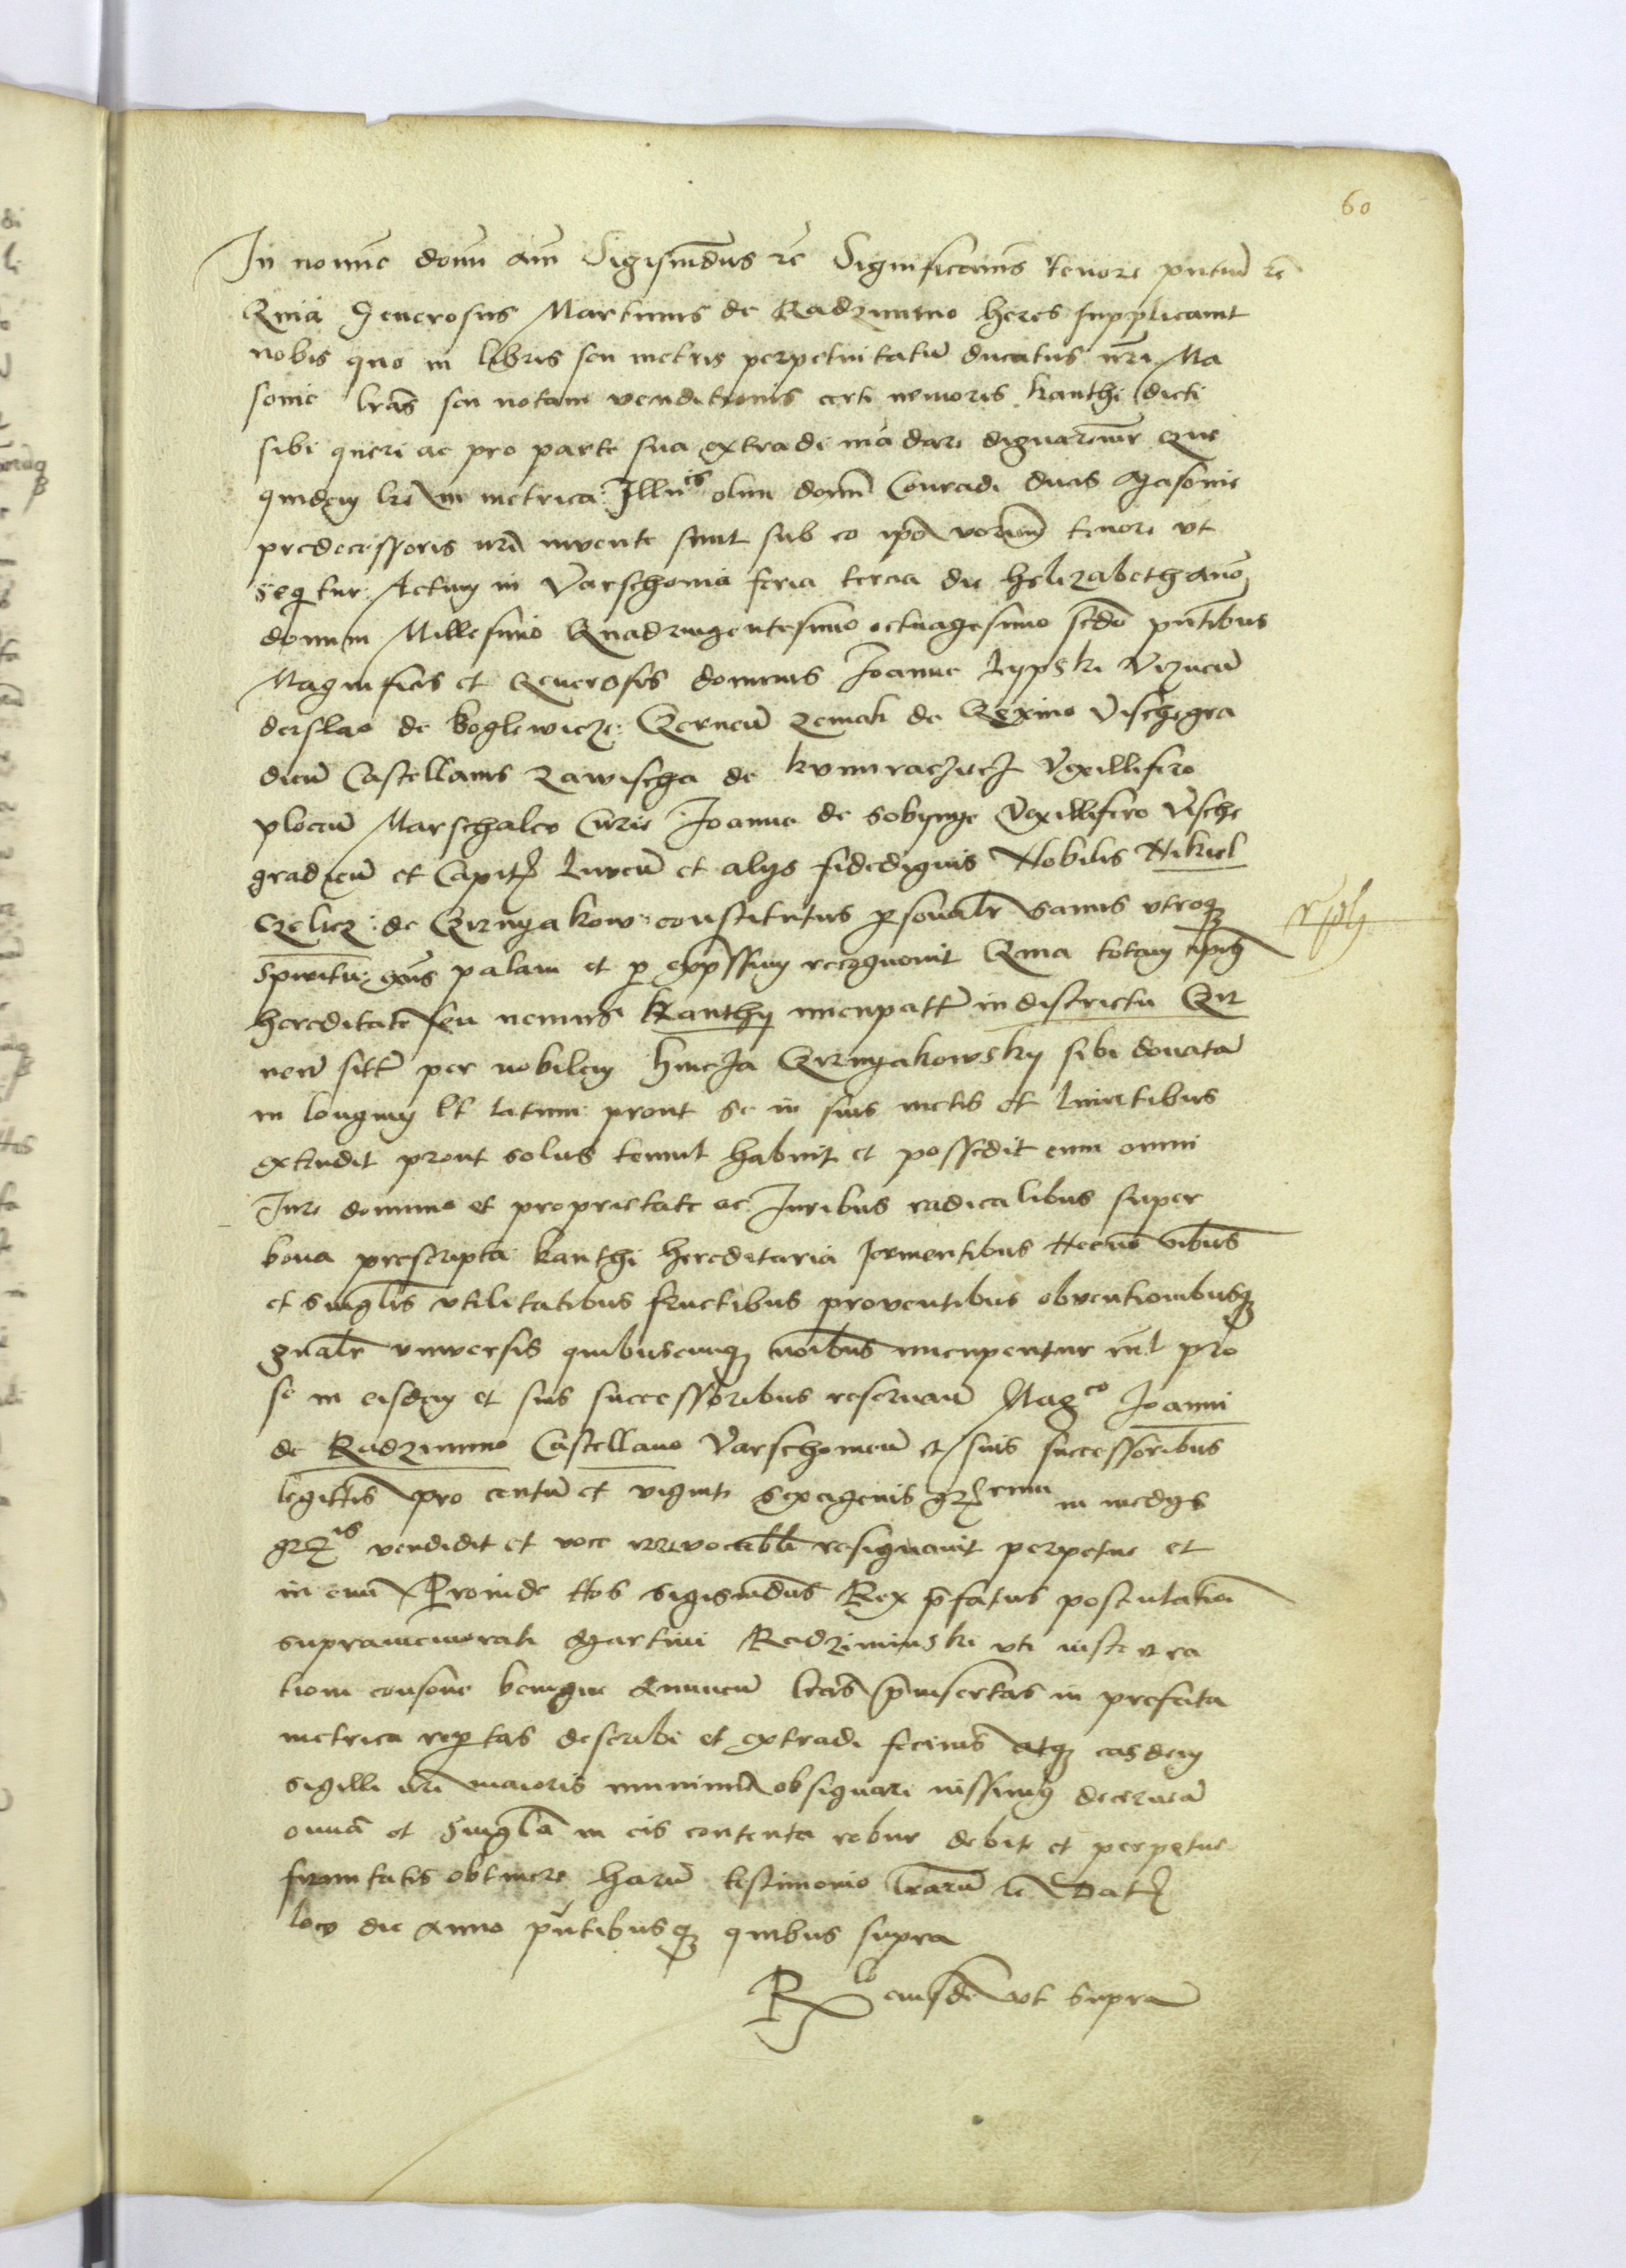 60
In nomine domini am̄ Sigismūdus rc̄ Significamus tenore pn̄tium rc̄
Quia Generosus Martinus de Radzimino heres supplicauit
nobis quo in libris seu metris perpetuitatū ducatus nr̄i Ma
souie lr̄as seu notam venditionis certi nemoris kanthi dicti
sibi queri ac pro parte sua extradi mādare dignaremur Que
quidem lr̄e in metrica Illūcis olim domī Conradi ducis Masouie
predecessoris nr̄i invente sunt sub eo ipō verborū tenore vt
Seqtur Actum in Varschouia feria tercia die Helizabeth āno
domini Millesimo Quadringentesimo octuagesimo scd̄o pn̄tibus
Magnificis et Generosis dominis Joanne Lypski Viznen̄
derslao de Boglewicze Czernen̄ Zemak de Czexino Vischegra
dien̄ Castellanis Zawischa de kunracziczi Vexillifero
plocen̄ Marschalco Curie Joanne de Sobynye Vexillifero Vische
gradien̄ et Capit Liuen̄ et alijs fidedignis Nobilis Nikiel
Czelicz de Czirnyakow constitutus psonalr̄ sanus vtroq
spiritu gn̄s palam et p exp̄ssum recognouit Quia totam ip̄us
hereditatē seu nemus kanthy nuncupatt in districtu Czir
nen̄ sitt per nobilem hincza Czirnyakowsky sibi donatā
in longum lt latum prout se in suis metis et limitibus
extendit prout solus tenuit habuit et possedit cum omni
Jure dominio et proprietate ac Juribus radicalibus super
bona prescripta kanthi hereditaria seruientibus Necnō oībus
et singlis vtilitatibus fructibus prouentibus obuentionibusq
gn̄alr̄ vniuersis quibuscunq noībus nuncupentur nīl pro
se in eisdem et suis successoribus reseruan̄ Magco Joanni
de Radzimino Castellano Varschouien̄ et suis successoribus
legittis pro centū et viginti sexagenis in medijs
vendidit et voce irreuocabli resignauit perpetue et
in euū Proinde Nos Sigismūdus Rex p̄fatus postulationi
supramemorati Martini Radziminski vti iuste et ra
tioni consone benigne Annuen̄ lr̄as p̄insertas in prefata
metrica reptas describi et extradi fecimus atq easdem
sigilli nr̄i maioris munimīe obsignari iussimus decernen̄
omnia et Singlā in eis contenta robur debite et perpetue
firmitatis obtinere harū testimonio lr̄arū rc̄ Dat
loco die Anno pn̄tibusq quibus supra
Rlō eiusdē vt supra